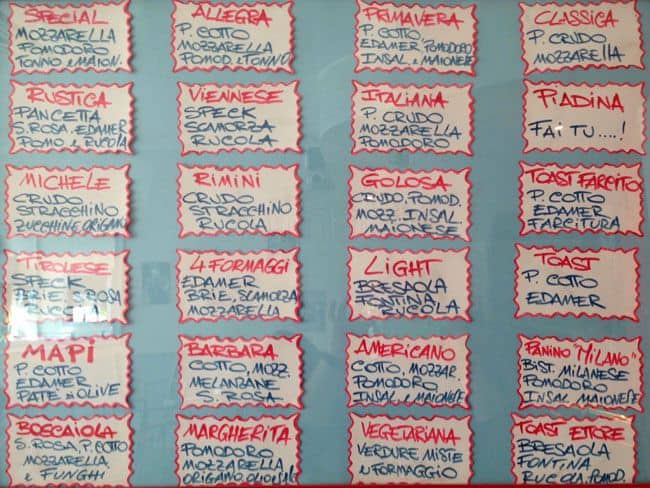 SPECIAL
MOZZARELLA
POMODORO
TONNO e MAION.
ALLEGRA
P. COTTO
MOZZARELLA
POMOD. e TONNO
PRIMAVERA
P. COTTO,
EDAMER, POMODORO
INSAL. e MAIONESE
CLASSICA
P. CRUDO
MOZZARELLA
RUSTICA
PANCETTA
S. ROSA, EDAMER
POMO e RUCOLA
VIENNESE
SPECK
SCAMORZA
RUCOLA
ITALIANA
P. CRUDO
MOZZARELLA
POMODORO
PIADINA
FAI TU....!
MICHELE
CRUDO
STRACCHINO
ZUCCHINE, ORIGANO
RIMINI
CRUDO
STRACCHINO
RUCOLA
GOLOSA
CRUDO, POMOD.
MOZZ. INSAL.
MAIONESE
TOAST FARCITO
P. COTTO
EDAMER
FARCITURA
TIROLESE
SPECK
BRIE, S. ROSA
RUCOLA
4 FORMAGGI
EDAMER
BRIE, SCAMORZA
MOZZARELLA
LIGHT
BRESAOLA
FONTINA
RUCOLA
TOAST
P. COTTO
EDAMER
MAPI
P. COTTO
EDAMER
PATE' di OLIVE
BARBARA
COTTO, MOZZ.
MELANZANE
S. ROSA
AMERICANO
COTTO, MOZZAR.
POMODORO
INSAL. e MAIONESE
PANINO "MILANO"
BIST. MILANESE
POMODORO
INSAL. MAIONESE
BOSCAIOLA
S. ROSA, P. COTTO
MOZZARELLA
e FUNGHI
MARGHERITA
POMODORO
MOZZARELLA
ORIGANO, OLIO e SALE
VEGETARIANA
VERDURE MISTE
e FORMAGGIO
TOAST ETTORE
BRESAOLA
FONTINA
RUCOLA, POMOD.